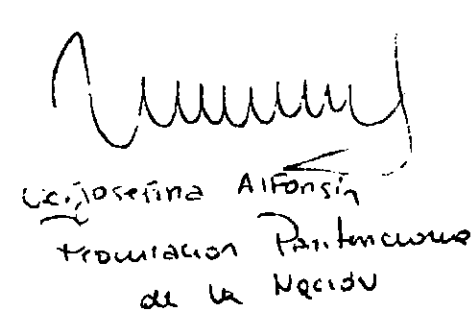 Lic. Josefina Alfonsín
Procuración Penitenciaria
de la Nación